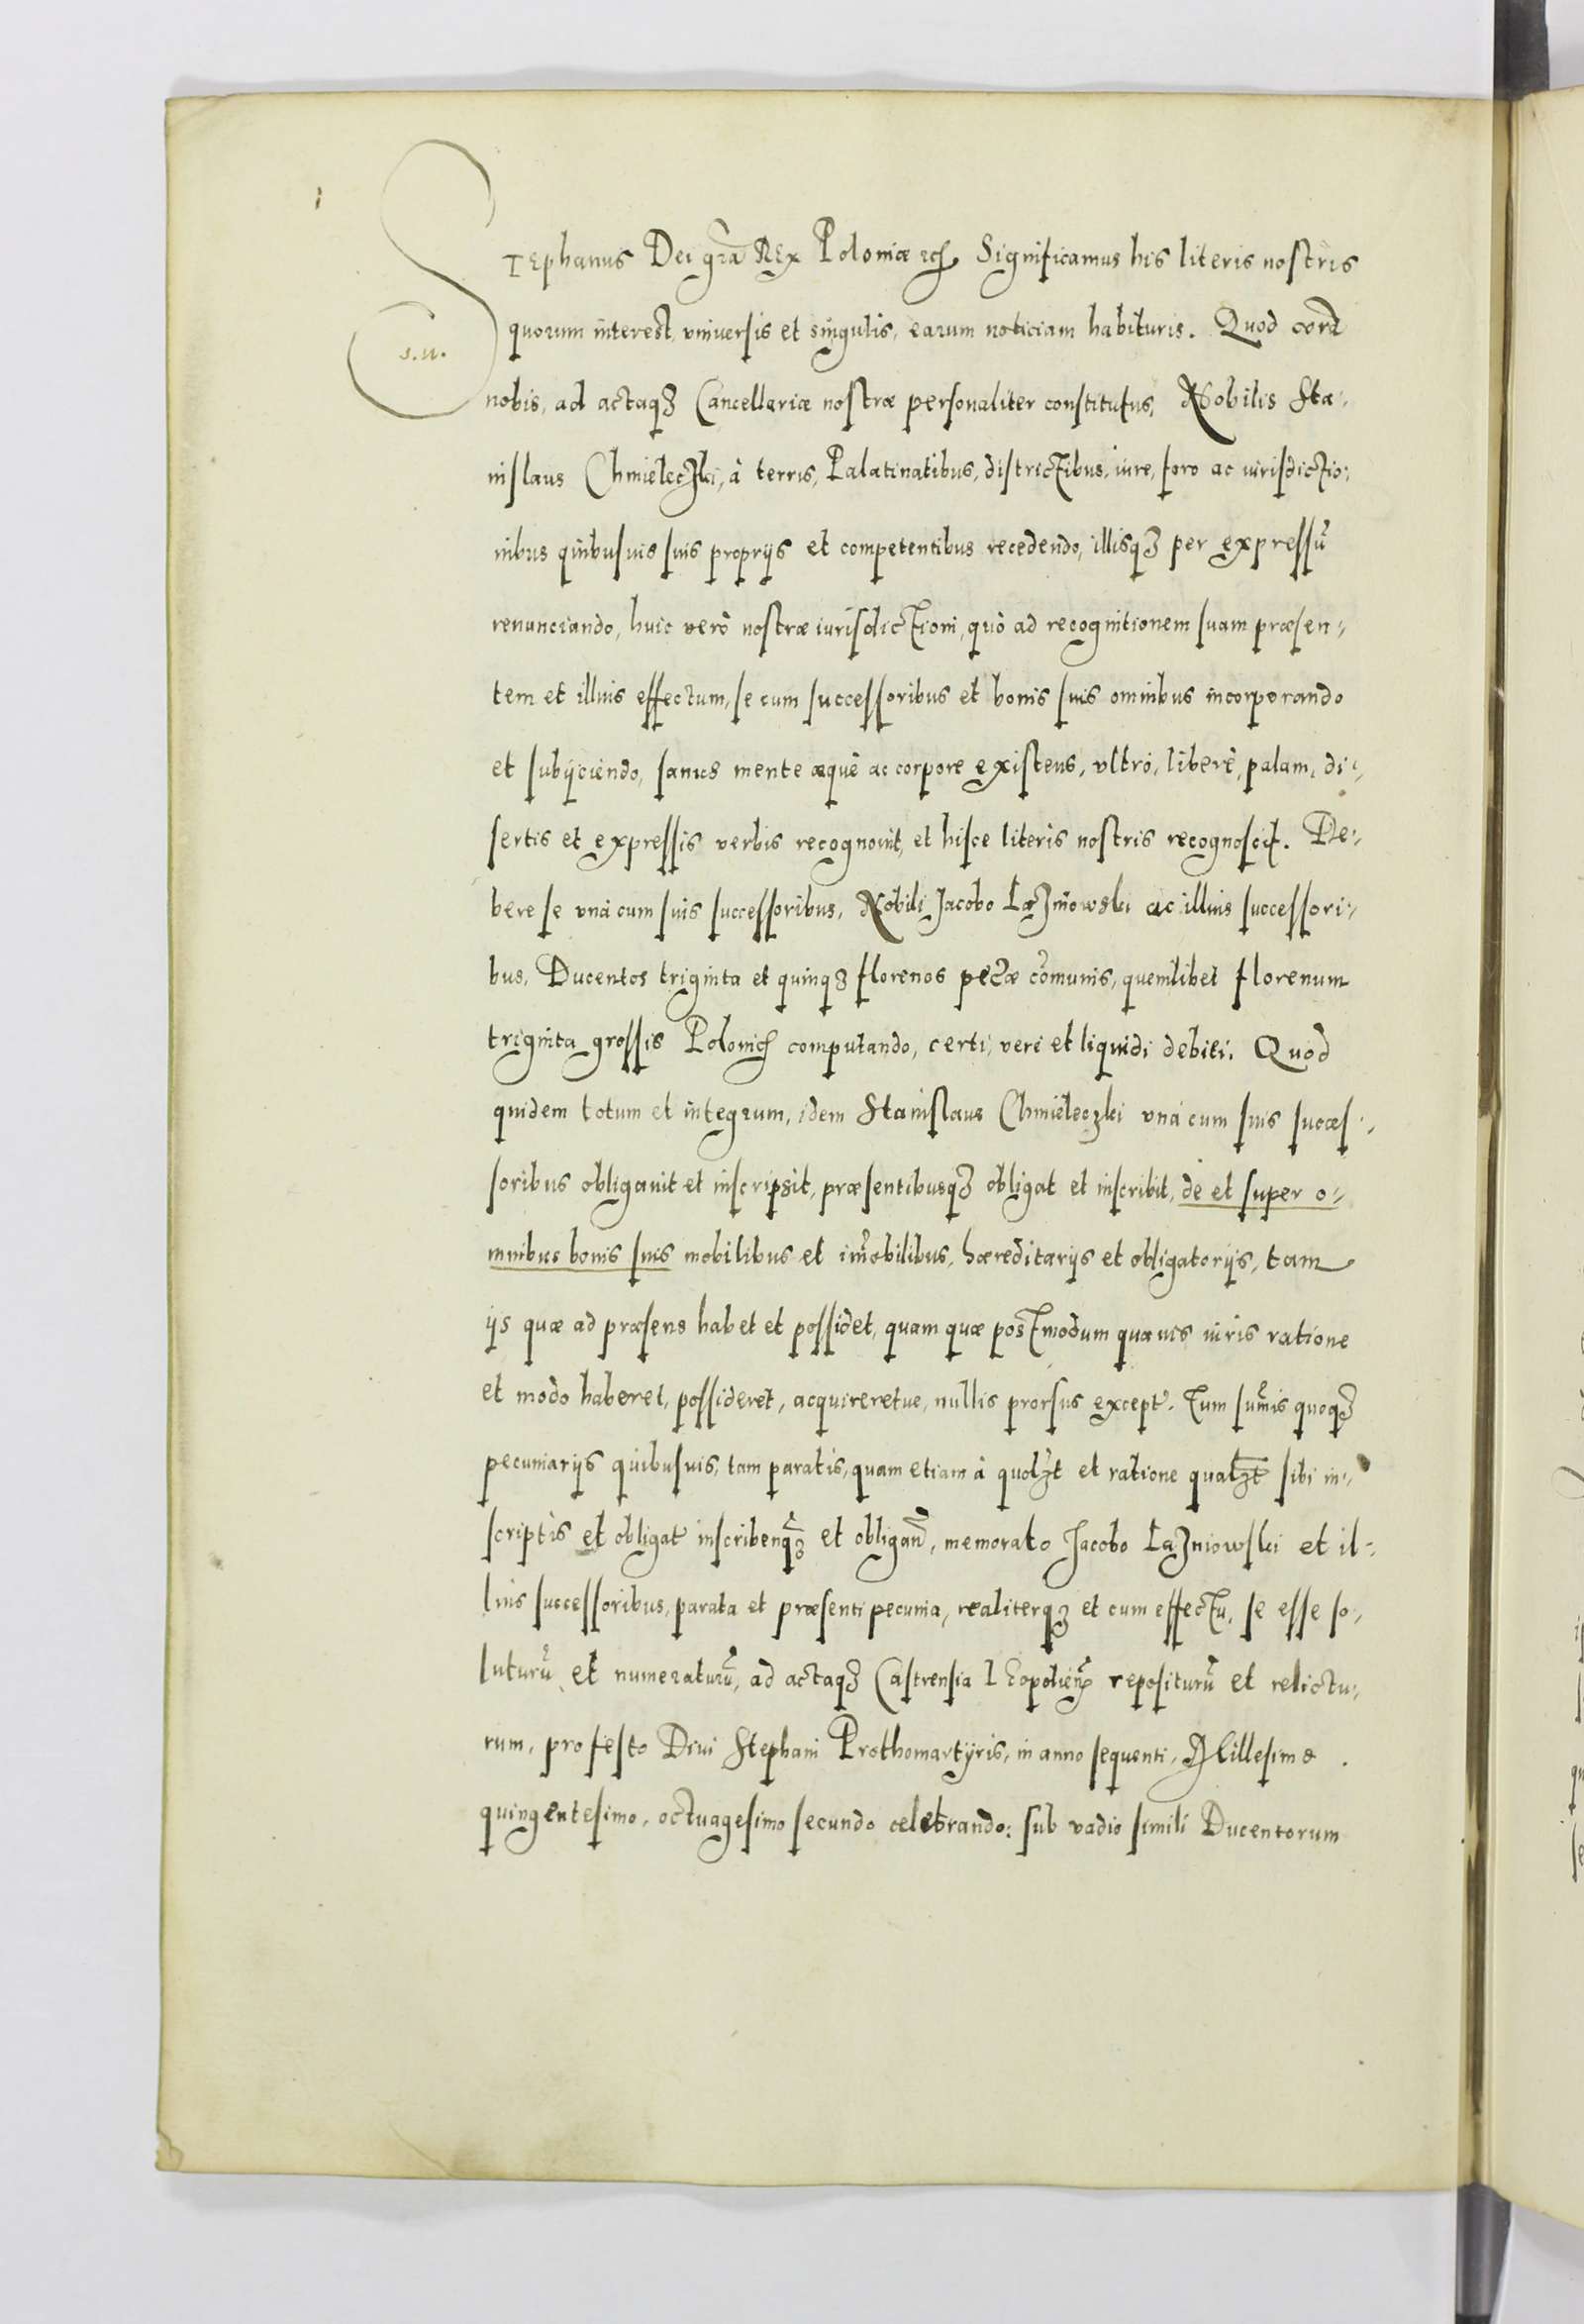 STEphanus Dei gr̃a REx Poloniæ etc Significamus his literis nostris
s.n.
quorum interest, vniuersis et singulis, earum noticiam habituris. Quod corã
nobis, ad actaqꝫ Cancellariæ nostræ personaliter constitutus, Nobilis Sta-
nislaus Chmieleczki, à terris, Palatinatibus, districtibus, iure, foro ac iurisdictio-
nibus quibusuis suis proprijs et competentibus recedendo, illisqꝫ per expressũ
renunciando, huic verò nostræ iurisdictioni, quò ad recognitionem suam præsen-
tem et illius effectum, se cum successoribus et bonis suis omnibus incorporando
et subijciendo, sanus mente æquè ac corpore existens, vltrò, liberè, palam, di-
sertis et expressis verbis recognouit, et hisce literis nostris recognoscit. De-
bere se vnà cum suis successoribus, Nobili Jacobo Łazniowski ac illius successori-
bus, Ducentos triginta et quinqꝫ florenos pecꝫæ com̃unis, quemlibet florenum
triginta grossis Polonic computando, certi, veri et liquidi debiti. Quod
quidem totum et integrum, idem Stanislaus Chmieleczki vnà cum suis succes-
soribus obligauit et inscripsit, præsentibusqꝫ obligat et inscribit, de et super o-
mnibus bonis suis mobilibus et im̃obilibus, hæreditarijs et obligatorijs, tam
ijs quæ ad præsens habet et possidet, quam quæ postmodum quauis iuris ratione
et modo haberet, possideret, acquireretue, nullis prorsus except. Tum sum̃is quoqꝫ
pecuniarijs quibusuis, tam paratis, quam etiam à quolꝫt et ratione qualꝫt sibi in-
scriptis et obligat inscribenqꝫ et obligan̄, memorato Jacobo Łazniowski et il-
lius successoribus, parata et præsenti pecunia, realiterqꝫ et cum effectu, se esse so-
luturũ et numeraturũ, ad actaqꝫ Castrensia LEopolien̄ repositurũ et relictu-
rum, pro festo Diui Stephani Prothomartyris, in anno sequenti, Millesimo
quingentesimo, octuagesimo secundo celebrando: sub vadio simili Ducentorum